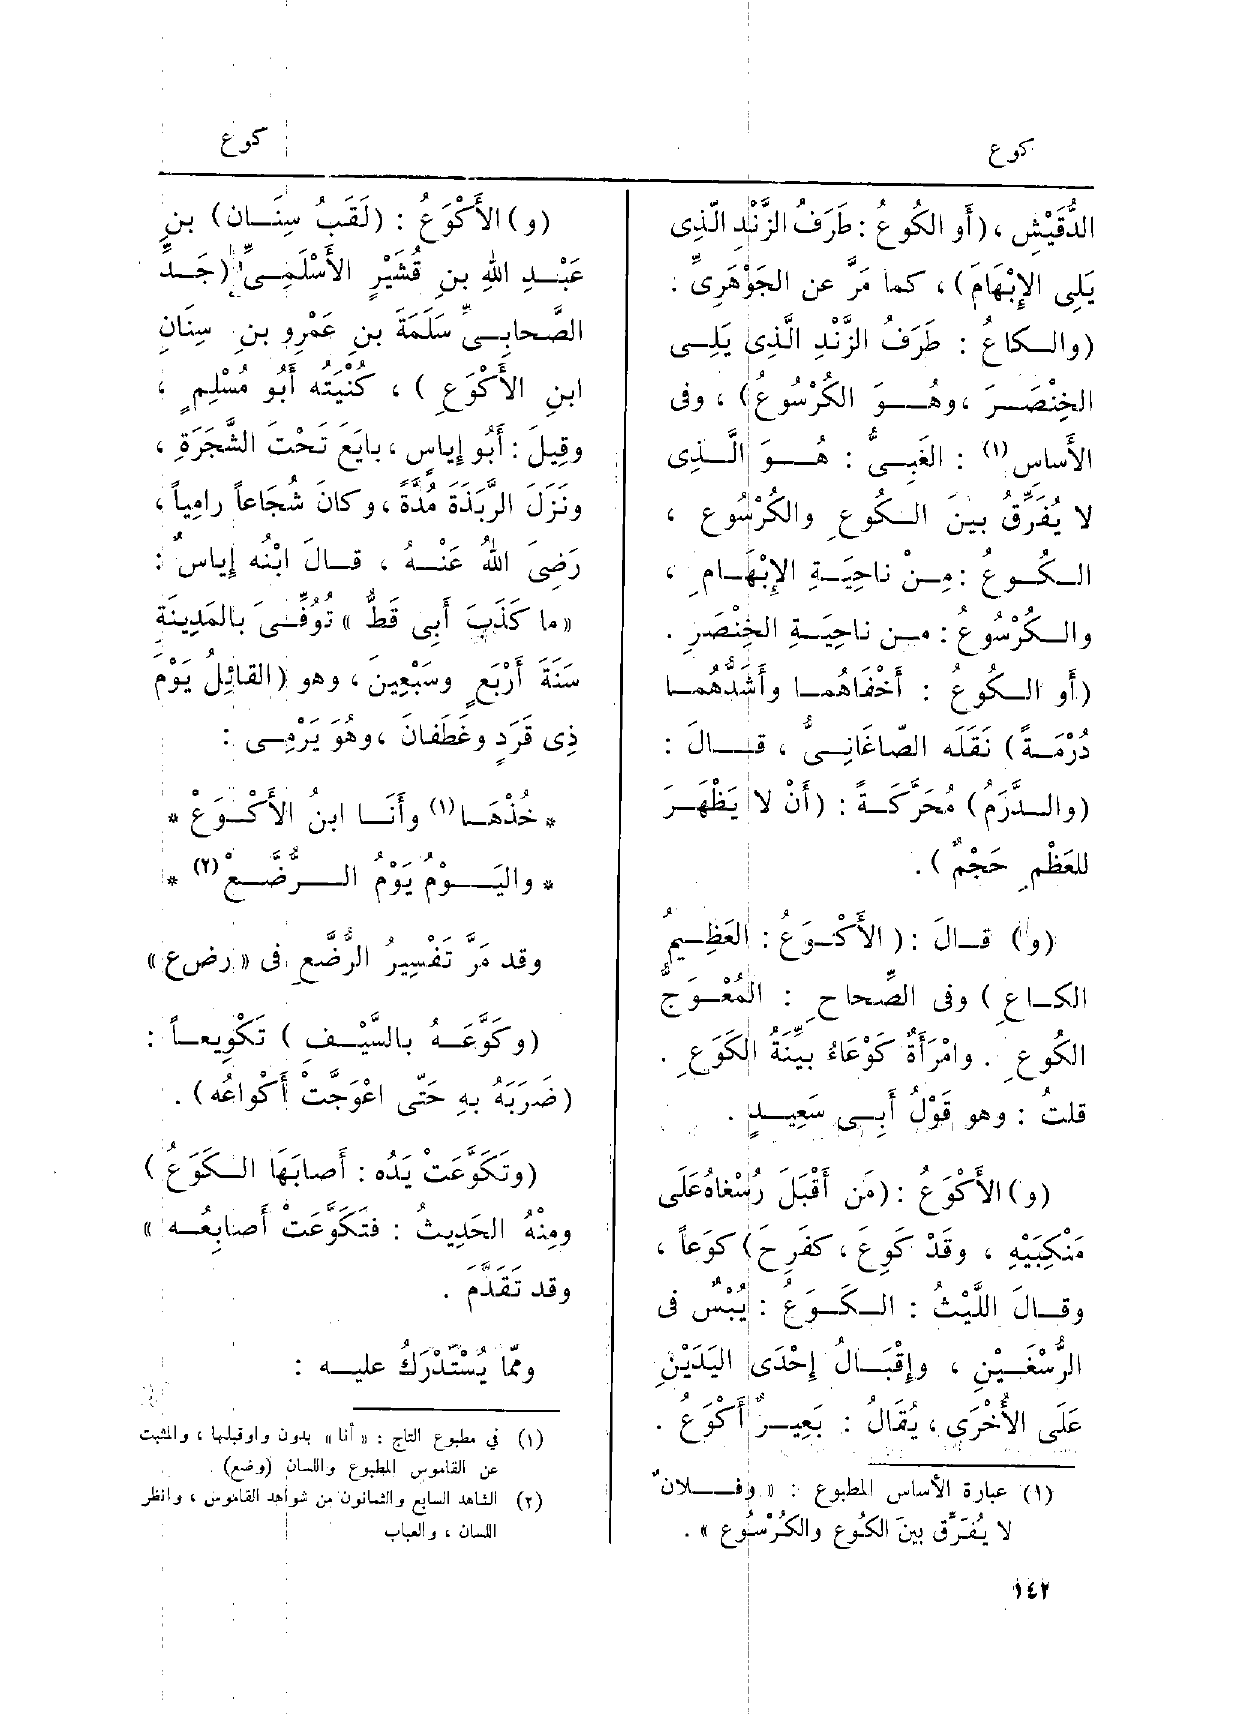 كوع
كوع
الدُّقَيْش ، (أو الكُوعُ : طَرَفُ الزَّنْدِ الّذِى
يَلِى الإِبْهَامَ) ، كما مَرَّ عن الجَوْهَرِىِّ .
(والــكاعُ : طَرَفُ الزَّنْدِ الَّذِى يَلِــى
الخِنْصَــرَ ، وهُــوَ الكُرْسُوعُ) ، وفى
الأَساس (١) : الغَبِــىُّ : هُــوَ الَّــذِى
لا يُفَرِّقُ بينَ الــكُوعِ والكُرْسُوعِ ،
الــكُــوعُ : مِــنْ ناحِيَــةِ الإِبْهَــامِ ،
والــكُرْسُوعُ : مــن ناحِيَــةِ الخِنْصَرِ .
(أو الــكُوعُ : أَخْفَاهُمــا وأَشَدُّهُمــا
دُرْمَــةً) نَقَلَه الصّاغَانِــىُّ ، قــالَ :
(والــدَّرَمُ) مُحَرَّكَــةً : (أَنْ لا يَظْهَــرَ
للعَظْمِ حَجْمٌ) .
(و) قــالَ : (الأَكْــوَعُ : العَظِــيمُ
الكــاعِ) وفى الصِّحاحِ : المُعْــوَجُّ
الكُوعِ . وامْرَأَةٌ كَوْعَاءُ بيِّنَةُ الكَوَعِ .
قلتُ : وهو قَوْلُ أَبِــى سَعِيــدٍ .
(و) الأَكْوَعُ : (مَن أَقْبَلَ رُسْغاهُ عَلَى
مَنْكِبَيْهِ ، وقَدْ كَوِعَ ، كفَرِحَ) كَوَعاً ،
وقــالَ اللَّيْثُ : الــكَــوَعُ : يُبْسٌ فى
الرُّسْغَــيْنِ ، وإِقْبَــالُ إِحْدَى اليَدَيْنِ
عَلَى الأُخْرَى ، يُقَالُ : بَعِيــرٌ أَكْوَعُ .
(١) عبارة الأساس المطبوع : « وفــلانٌ
لا يُفَرِّق بينَ الكُوع والكُرْسُوع » .
١٤٢
(و) الأَكْوَعُ : (لَقَبُ سِنَــان) بنِ
عَبْــدِ اللهِ بنِ قُشَيْرٍ الأَسْلَمِــىِّ (جَــدِّ
الصَّحابِــىِّ سَلَمَةَ بنِ عَمْرِو بنِ سِنَانِ
ابنِ الأَكْوَعِ) ، كُنْيَتُه أَبُو مُسْلِمٍ ،
وقِيلَ : أَبُو إِياسٍ ، بايَعَ تَحْتَ الشَّجَرَةِ ،
ونَزَلَ الرَّبَذَةَ مُدَّةً ، وكانَ شُجَاعاً رامِياً ،
رَضِىَ اللهُ عَنْــهُ ، قــالَ ابْنُه إِياسٌ :
«ما كَذَبَ أَبِى قَطُّ» تُوُفِّــىَ بالمَدِينَةِ
سَنَةَ أَرْبَعٍ وسَبْعِينَ ، وهو (القائِلُ يَوْمَ
ذِى قَرَدٍ وغَطَفانَ ، وهُوَ يَرْمِــى :
* خُذْهَــا (١) وأَنَــا ابنُ الأَكْــوَعْ *
* واليَــوْمُ يَوْمُ الــرُّضَّــعْ (٢) *
وقد مَرَّ تَفْسِيرُ الرُّضَّعِ فى «رضع»
(وكَوَّعَــهُ بالسَّيْــفِ) تَكْوِيعــاً :
(ضَرَبَهُ بهِ حَتّى اعْوَجَّتْ أَكْواعُه) .
(وتَكَوَّعَت يَدُه : أَصابَهَا الــكَوَعُ)
ومِنْهُ الحَدِيثُ : فتَكَوَّعَتْ أَصابِعُــه »
وقد تَقَدَّم .
وممّا يُسْتَدْرَكُ عليــه :
(١) في مطبوع التاج : « أنا » بدون واو قبلها ، والمثبت
عن القاموس المطبوع واللسان (وضع) .
(٢) الشاهد السابع والثمانون من شواهد القاموس ، وانظر
اللسان ، والعباب